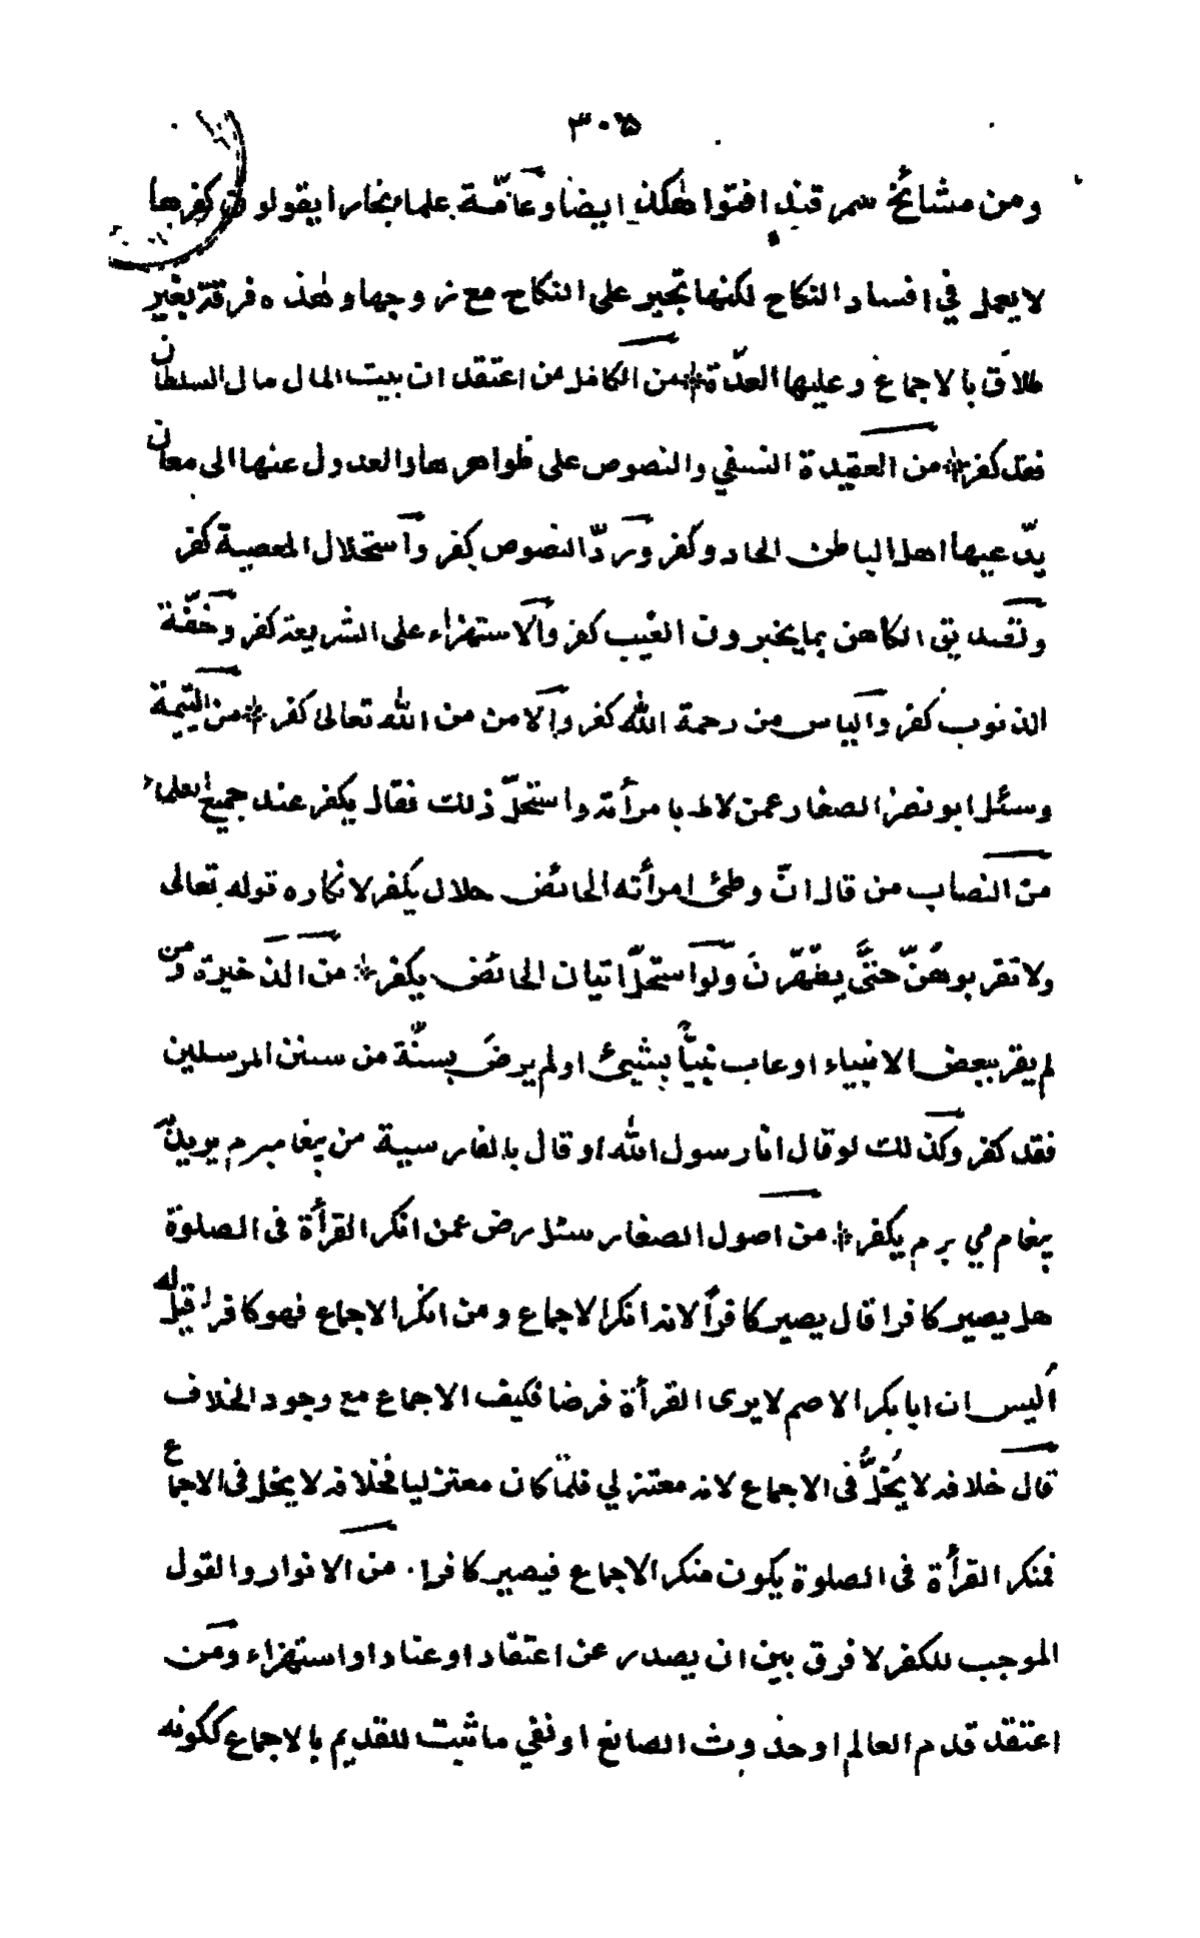 ٣٠٥
ومن مشائخ سمرقند افتوا هكذا ايضا وعامّة علماء بخارا يقولون كفرها
لا يعمل في افساد النكاح لكنها تجبر على النكاح مع زوجها وهذه فرقة بغير
طلاق بالاجماع وعليها العدّة من الكامل من اعتقد ان بيت المال مال السلطان
فقد كفر من العقيدة النسفي والنصوص على ظواهرها والعدول عنها الى معان
يدّعيها اهل الباطن الحاد وكفر وردّ النصوص كفر واستحلال المعصية كفر
وتصديق الكاهن بما يخبر ون الغيب كفر والاستهزاء على الشريعة كفر وخفّة
الذنوب كفر والياس من رحمة الله كفر والامن من الله تعالى كفر من اليتيمة
وسئل ابو نصر الصفار عمن لاط بامرأته واستحلّ ذلك فقال يكفر عند جميع العلماء
من النصاب من قال انّ وطئ امرأته الحائض حلال يكفر لانكاره قوله تعالى
ولا تقربوهنّ حتّى يطهرنَ ولو استحلّ اتيان الحائض يكفر من الذخيرة من
لم يقر ببعض الانبياء او عاب نبيّاً بشيئ او لم يرضَ بسنّة من سنن المرسلين
فقد كفر وكذلك لو قال انا رسول الله او قال بالفارسية من پيغامبرم يريد
پيغام مي برم يكفر من اصول الصفار سئل رض عمن انكر القرأة فى الصلوة
هل يصير كافرا قال يصير كافراً لانه انكر الاجماع ومن انكر الاجماع فهو كافر قيل له
أليس ان ابا بكر الاصم لا يرى القرأة فرضا فكيف الاجماع مع وجود الخلاف
قال خلافه لا يُخلُّ فى الاجماع لانه معتزلي فلمّا كان معتزليا فخلافه لا يخل فى الاجماع
فمنكر القرأة فى الصلوة يكون منكر الاجماع فيصير كافرا من الانوار والقول
الموجب للكفر لا فرق بين ان يصدر عن اعتقاد او عناد او استهزاء ومن
اعتقد قدم العالم او حدوث الصانع او نفي ما ثبت للقديم بالاجماع ككونه